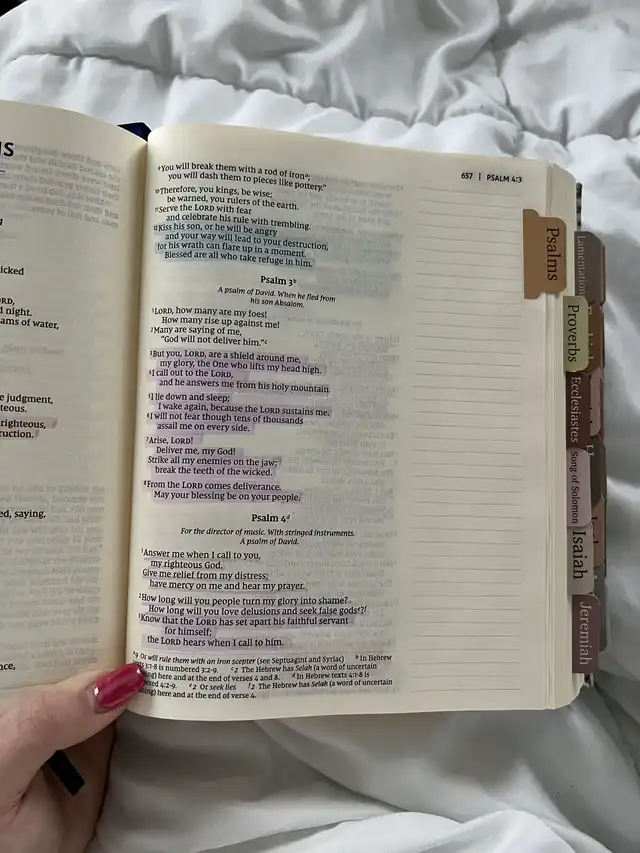 NS
icked
ORD,
d night.
ams of water,
e judgment,
teous.
righteous,
ruction.
ed, saying,
nce,
657 | PSALM 4:3
9 You will break them with a rod of iron a;
you will dash them to pieces like pottery."
10 Therefore, you kings, be wise;
be warned, you rulers of the earth.
11 Serve the LORD with fear
and celebrate his rule with trembling.
12 Kiss his son, or he will be angry
and your way will lead to your destruction,
for his wrath can flare up in a moment.
Blessed are all who take refuge in him.
Psalm 3 b
A psalm of David. When he fled from
his son Absalom.
1 LORD, how many are my foes!
How many rise up against me!
2 Many are saying of me,
"God will not deliver him." c
3 But you, LORD, are a shield around me,
my glory, the One who lifts my head high.
4 I call out to the LORD,
and he answers me from his holy mountain.
5 I lie down and sleep;
I wake again, because the LORD sustains me.
6 I will not fear though tens of thousands
assail me on every side.
7 Arise, LORD!
Deliver me, my God!
Strike all my enemies on the jaw;
break the teeth of the wicked.
8 From the LORD comes deliverance.
May your blessing be on your people.
Psalm 4 d
For the director of music. With stringed instruments.
A psalm of David.
1 Answer me when I call to you,
my righteous God.
Give me relief from my distress;
have mercy on me and hear my prayer.
2 How long will you people turn my glory into shame?
How long will you love delusions and seek false gods e? f
3 Know that the LORD has set apart his faithful servant
for himself;
the LORD hears when I call to him.
a 9 Or will rule them with an iron scepter (see Septuagint and Syriac) b In Hebrew
texts 3:1-8 is numbered 3:2-9. c 2 The Hebrew has Selah (a word of uncertain
here and at the end of verses 4 and 8. d In Hebrew texts 4:1-8 is
4:2-9. e 2 Or seek lies f 2 The Hebrew has Selah (a word of uncertain
here and at the end of verse 4.
Psalms
Proverbs
Ecclesiastes
Song of Solomon
Isaiah
Jeremiah
Lamentations